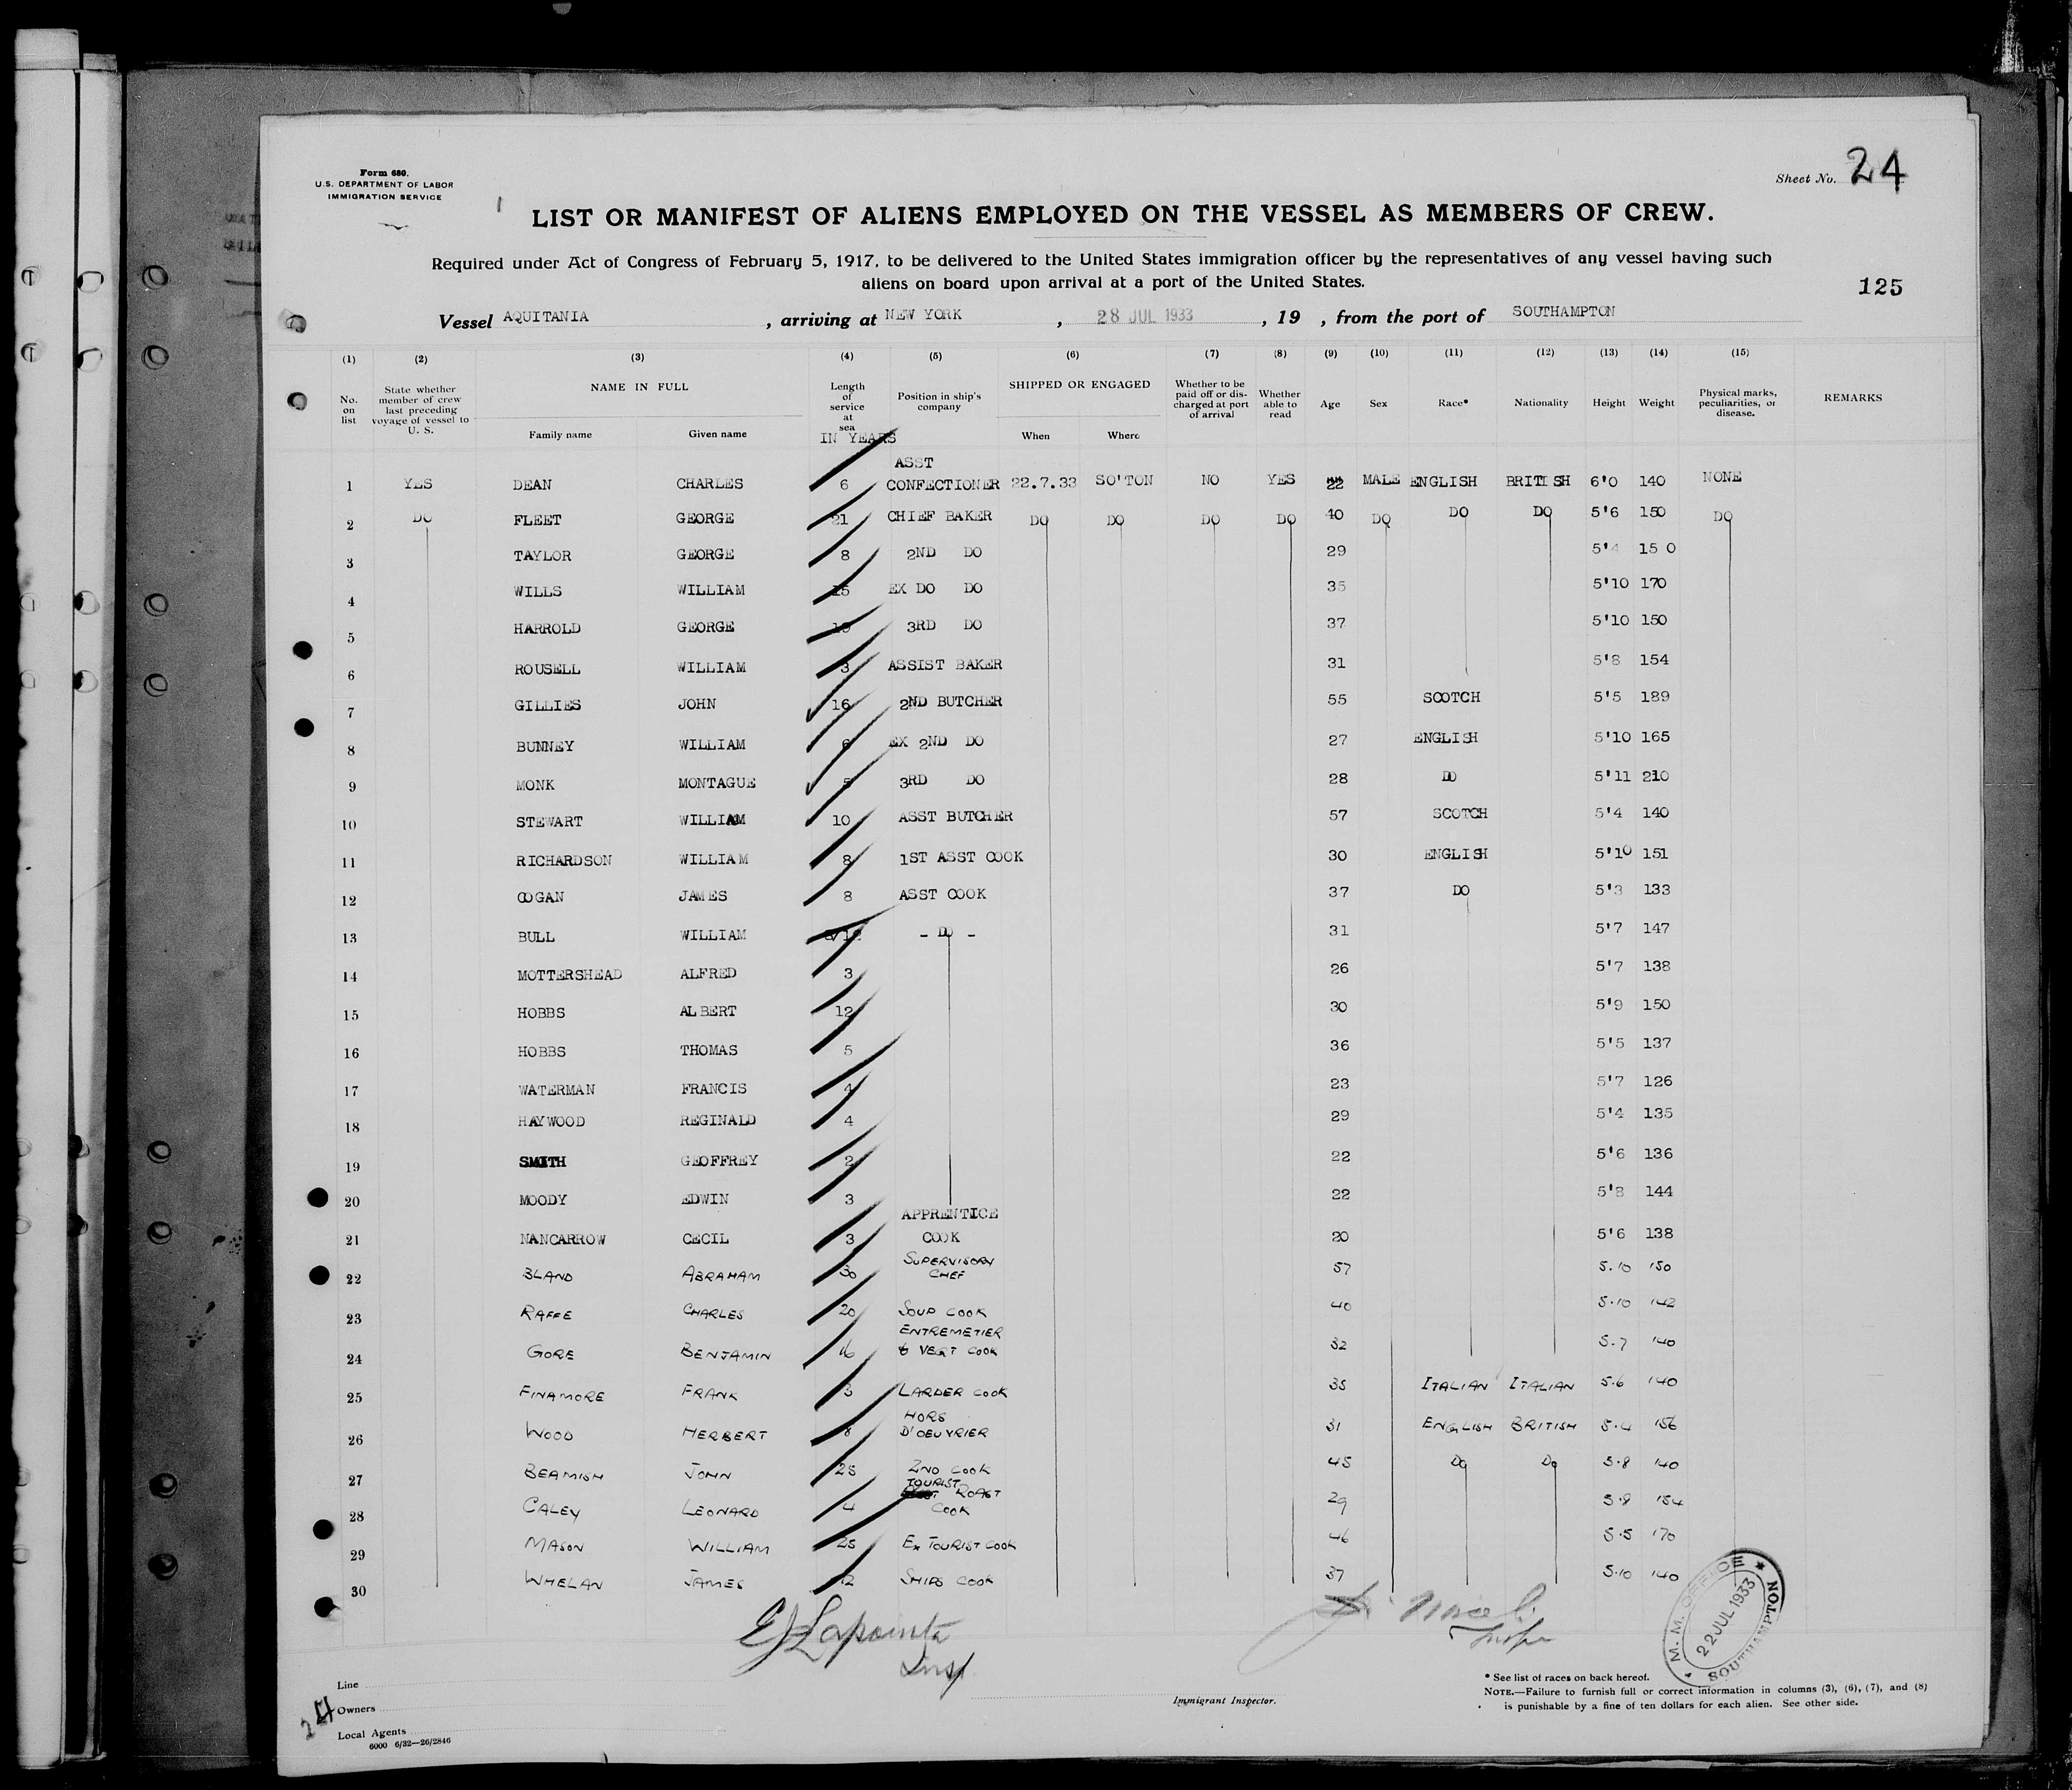 Form 680.
U.S. DEPARTMENT OF LABOR
IMMIGRATION SERVICE
Sheet No. 24
LIST OR MANIFEST OF ALIENS EMPLOYED ON THE VESSEL AS MEMBERS OF CREW.
Required under Act of Congress of February 5, 1917, to be delivered to the United States immigration officer by the representatives of any vessel having such
aliens on board upon arrival at a port of the United States.
125
Vessel AQUITANIA, arriving at NEW YORK, 28 JUL 1933, 19 , from the port of SOUTHAMPTON
(1) (2) (3) (4) (5) (6) (7) (8) (9) (10) (11) (12) (13) (14) (15)
No. on list
State whether member of crew last preceding voyage of vessel to U. S.
NAME IN FULL
Family name Given name
Length of service at sea
IN YEARS
Position in ship's company
SHIPPED OR ENGAGED
When Where
Whether to be paid off or discharged at port of arrival
Whether able to read
Age Sex Race* Nationality Height Weight
Physical marks, peculiarities, or disease.
REMARKS
1 YES DEAN CHARLES 6 ASST CONFECTIONER 22.7.33 SO'TON NO YES 22 MALE ENGLISH BRITISH 6'0 140 NONE
2 DO FLEET GEORGE 21 CHIEF BAKER DO DO DO DO 40 DO DO DO 5'6 150 DO
3 TAYLOR GEORGE 8 2ND DO 29 5'4 150
4 WILLS WILLIAM 15 EX DO DO 35 5'10 170
5 HARROLD GEORGE 3RD DO 37 5'10 150
6 ROUSELL WILLIAM 3 ASSIST BAKER 31 5'8 154
7 GILLIES JOHN 16 2ND BUTCHER 55 SCOTCH 5'5 189
8 BUNNEY WILLIAM 6 EX 2ND DO 27 ENGLISH 5'10 165
9 MONK MONTAGUE 5 3RD DO 28 DO 5'11 210
10 STEWART WILLIAM 10 ASST BUTCHER 57 SCOTCH 5'4 140
11 RICHARDSON WILLIAM 8 1ST ASST COOK 30 ENGLISH 5'10 151
12 COGAN JAMES 8 ASST COOK 37 DO 5'3 133
13 BULL WILLIAM - DO - 31 5'7 147
14 MOTTERSHEAD ALFRED 3 26 5'7 138
15 HOBBS ALBERT 12 30 5'9 150
16 HOBBS THOMAS 5 36 5'5 137
17 WATERMAN FRANCIS 4 23 5'7 126
18 HAYWOOD REGINALD 4 29 5'4 135
19 SMITH GEOFFREY 2 22 5'6 136
20 MOODY EDWIN 3 22 5'8 144
21 NANCARROW CECIL 3 APPRENTICE COOK 20 5'6 138
22 BLAND ABRAHAM 30 SUPERVISORY CHEF 57 5.10 150
23 RAFFE CHARLES 20 SOUP COOK 40 5.10 142
24 GORE BENJAMIN 16 ENTREMETIER & VEGT COOK 32 5.7 140
25 FINAMORE FRANK LARDER COOK 35 ITALIAN ITALIAN 5.6 140
26 WOOD HERBERT 8 HORS D'OEUVRIER 31 ENGLISH BRITISH 5.4 156
27 BEAMISH JOHN 25 2ND COOK 45 DO DO 5.8 140
28 CALEY LEONARD 4 TOURIST ROAST COOK 29 5.8 154
29 MASON WILLIAM 25 EX TOURIST COOK 46 5.5 170
30 WHELAN JAMES 12 SHIPS COOK 37 5.10 140
E J Lapointe
Insp.
M. M. OFFICE
22 JUL 1933
SOUTHAMPTON
Line
Owners
Local Agents
6000 6/32—26/2846
24
Immigrant Inspector.
* See list of races on back hereof.
NOTE.—Failure to furnish full or correct information in columns (3), (6), (7), and (8)
is punishable by a fine of ten dollars for each alien. See other side.